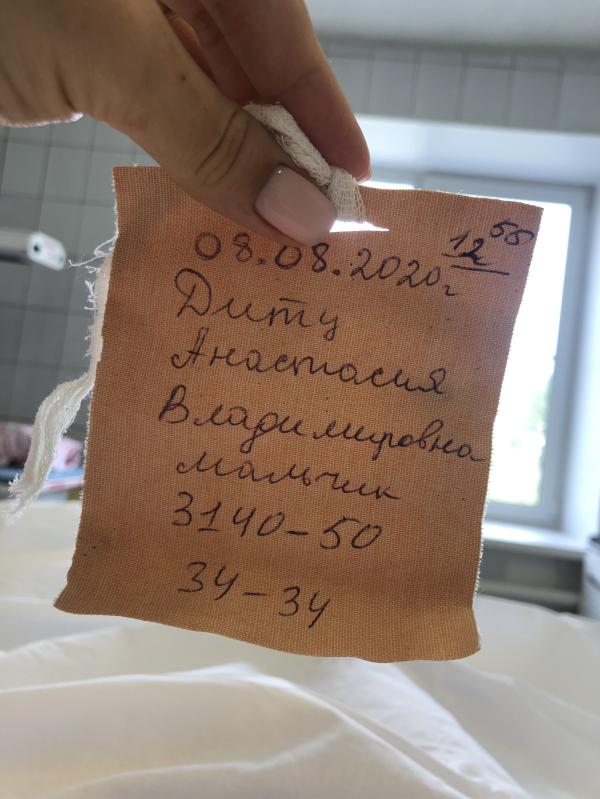 08.08.2020г 12 55
Диту
Анастасия
Владимировна
мальчик
3140-50
34-34